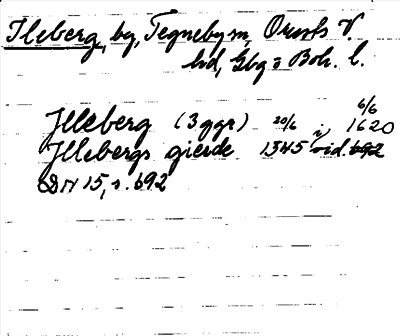 Ileberg, by, Tegneby sn, Orusts V.
hd, Gbg o Boh. l.
6/6
Jlleberg (3 ggr) 20/6 i, 1620
Jllebergs gierde 1345 vid. 692
DN 15, s. 692